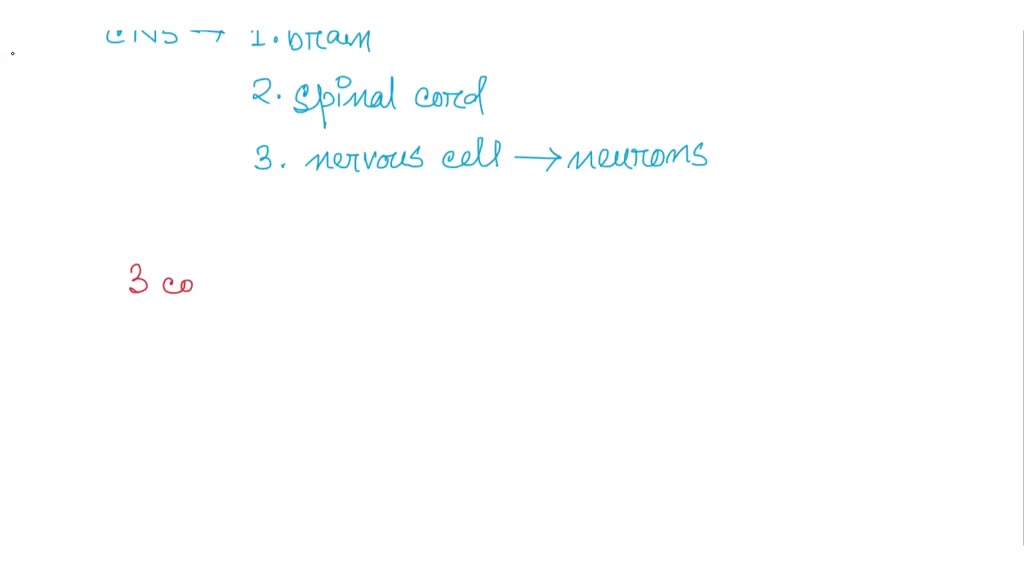 CNS → 1. brain
2. spinal cord
3. nervous cell → neurons
3 co